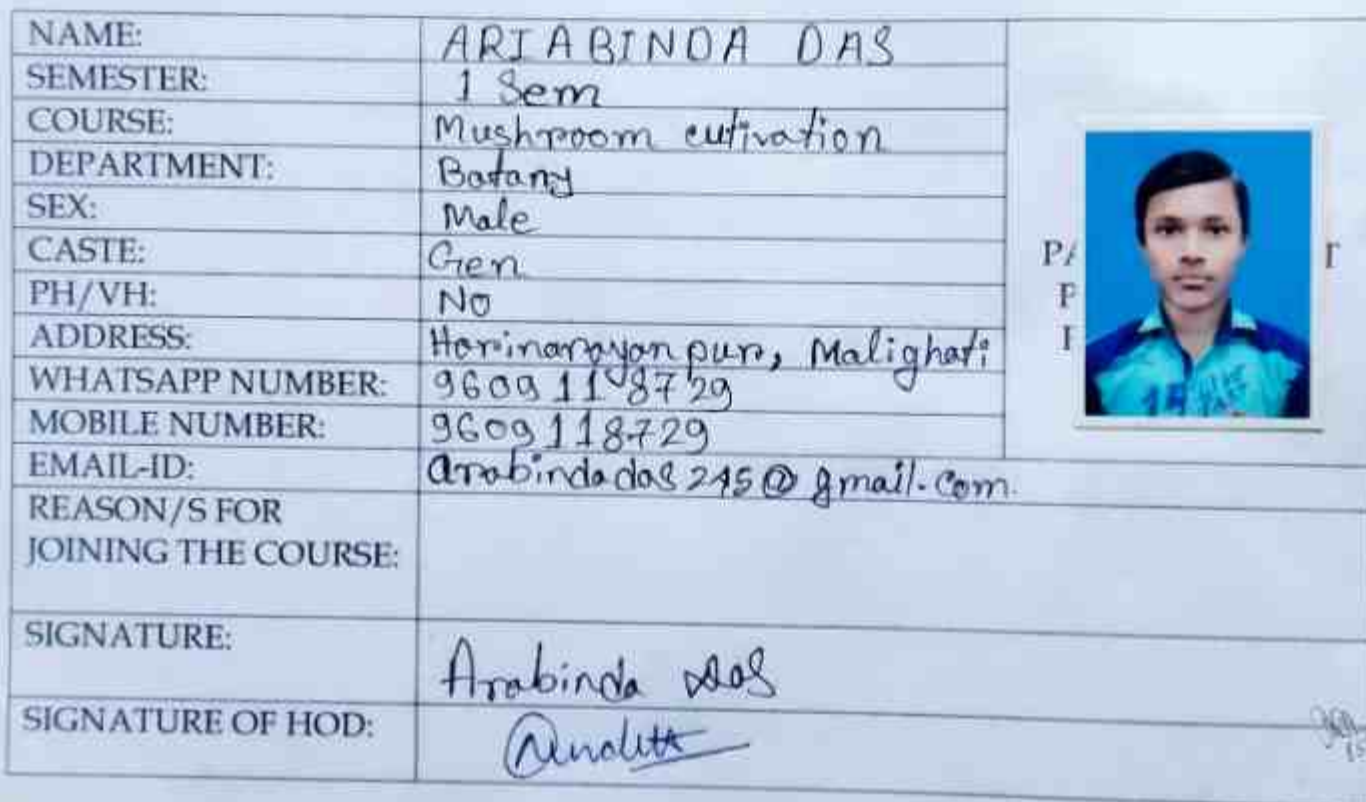 NAME: ARIABINDA DAS
SEMESTER: 1 Sem
COURSE: Mushroom cutivation
DEPARTMENT: Batany
SEX: Male
CASTE: Gen
PH/VH: No
ADDRESS: Harinarayanpur, Malighati
WHATSAPP NUMBER: 9609118729
MOBILE NUMBER: 9609118729
EMAIL-ID: arabindadas245@gmail.com.
REASON/S FOR
JOINING THE COURSE:
SIGNATURE: Arabinda Das
SIGNATURE OF HOD: